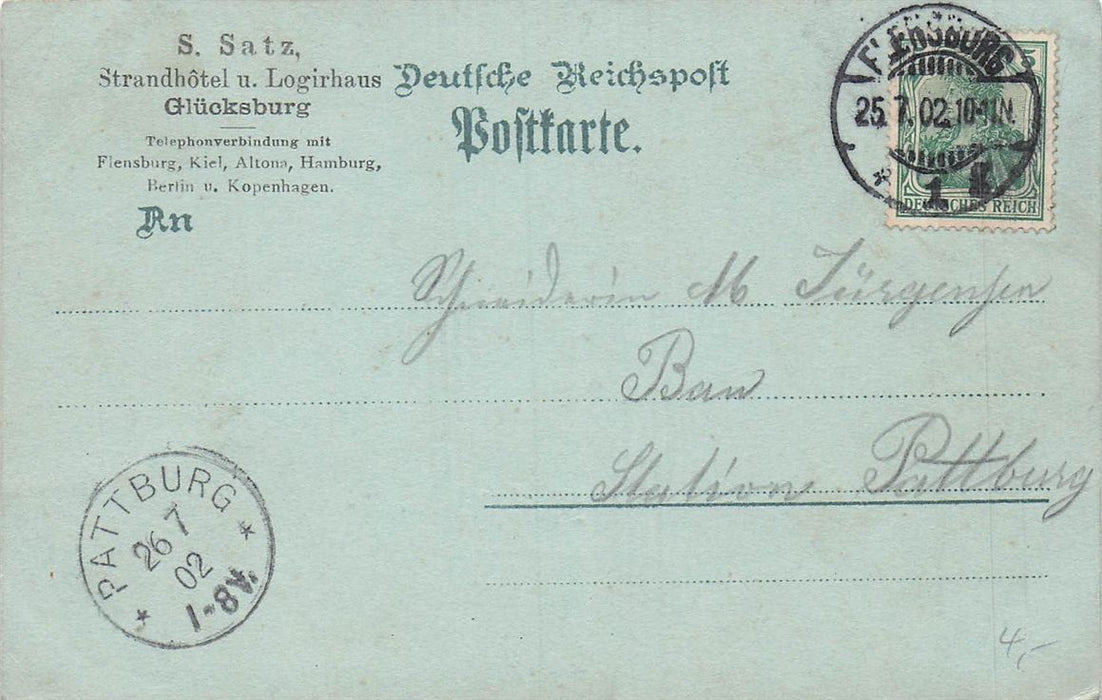 S. Satz,
Strandhôtel u. Logirhaus
Glücksburg
Telephonverbindung mit
Flensburg, Kiel, Altona, Hamburg,
Berlin u. Kopenhagen.
Deutsche Reichspost
Postkarte.
FLENSBURG
25.7.02.10-11N.
* 1
5
DEUTSCHES REICH
An
Schneiderin M Jürgensen
Bau
Station Pattburg
PATTBURG
26 7
02
* 1-8V. *
4,-